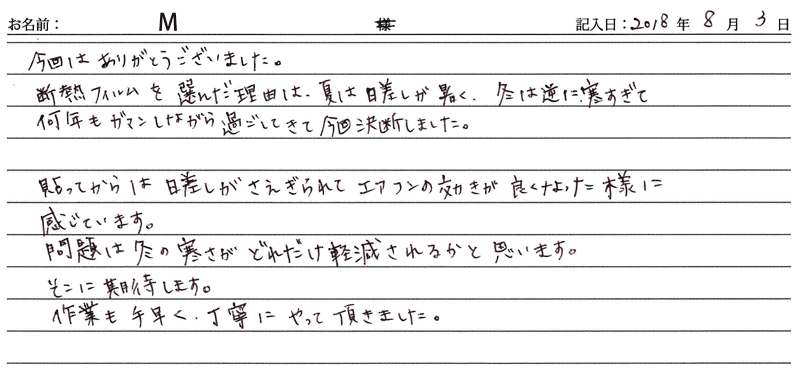 お名前： M 様 記入日：2018年 8月 3日
今回はありがとうございました。
断熱フィルムを選んだ理由は、夏は日差しが暑く、冬は逆に寒すぎて
何年もガマンしながら過ごしてきて今回決断しました。
貼ってからは日差しがさえぎられてエアコンの効きが良くなった様に
感じています。
問題は冬の寒さがどれだけ軽減されるかと思います。
そこに期待します。
作業も手早く、丁寧にやって頂きました。